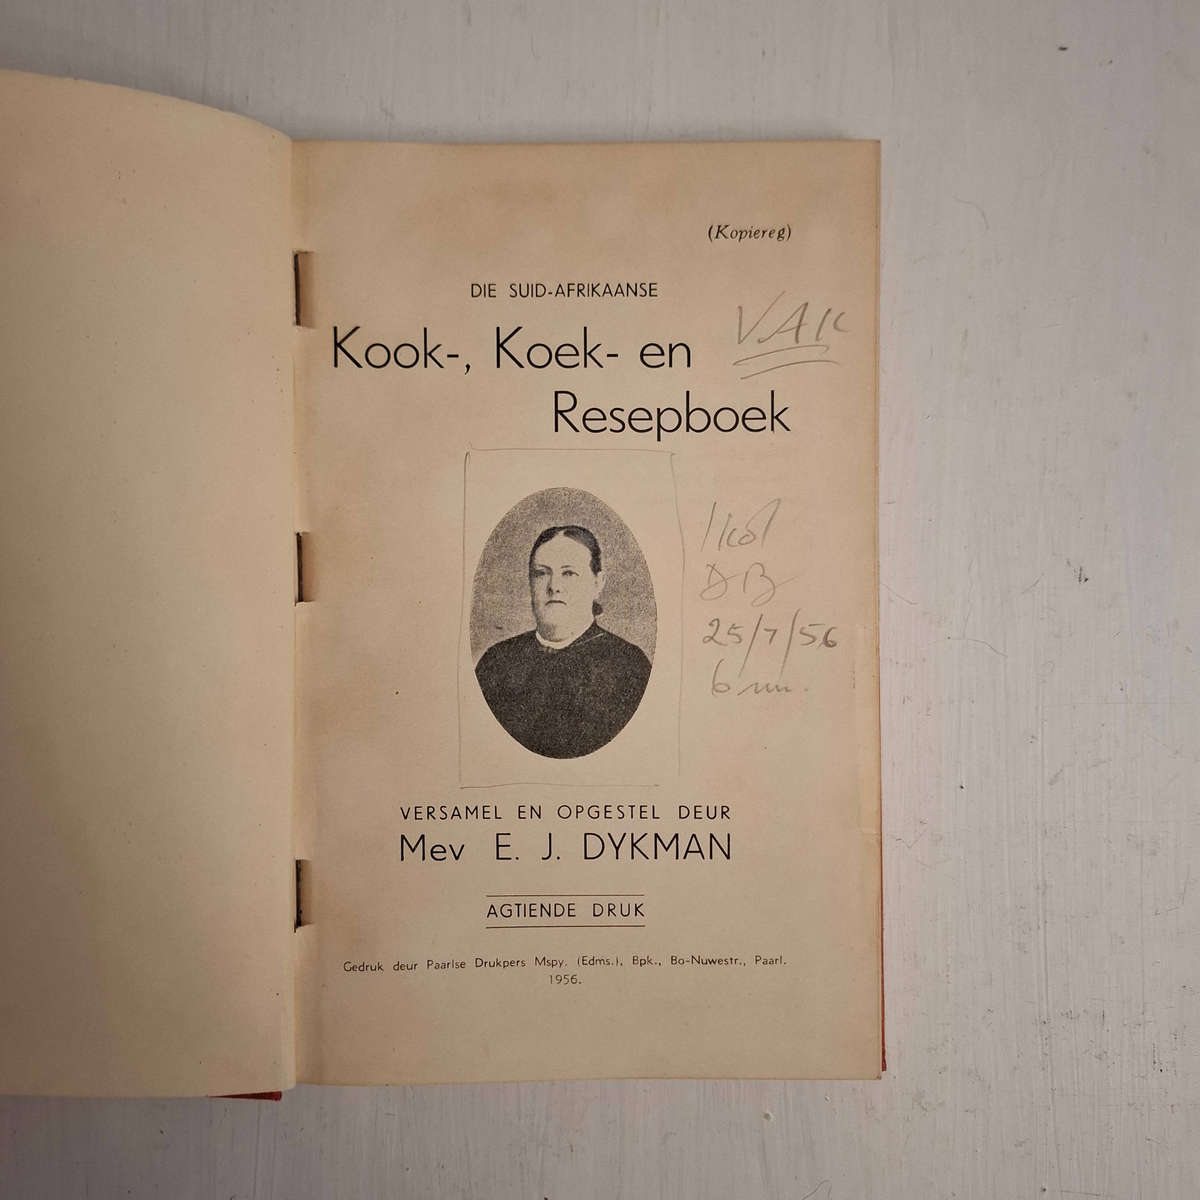 (Kopiereg)
DIE SUID-AFRIKAANSE
Kook-, Koek- en
Resepboek
VAK
DB
25/7/56
VERSAMEL EN OPGESTEL DEUR
Mev E. J. DYKMAN
AGTIENDE DRUK
Gedruk deur Paarlse Drukpers Mspy. (Edms.), Bpk., Bo-Nuwestr., Paarl.
1956.